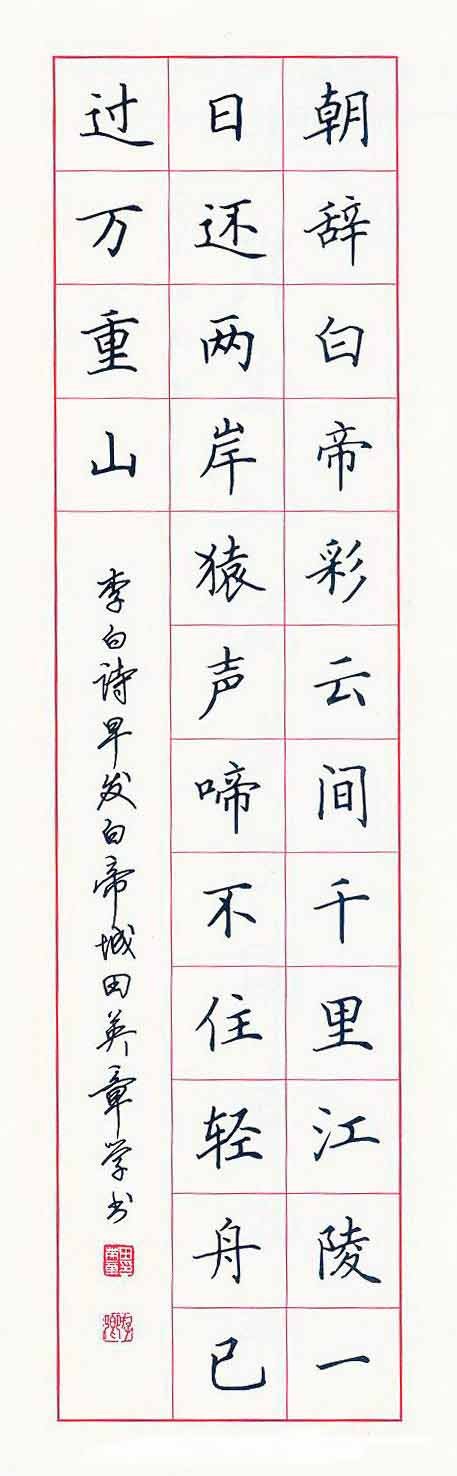 朝辞白帝彩云间千里江陵一
日还两岸猿声啼不住轻舟已
过万重山
李白诗早发白帝城田英章学书